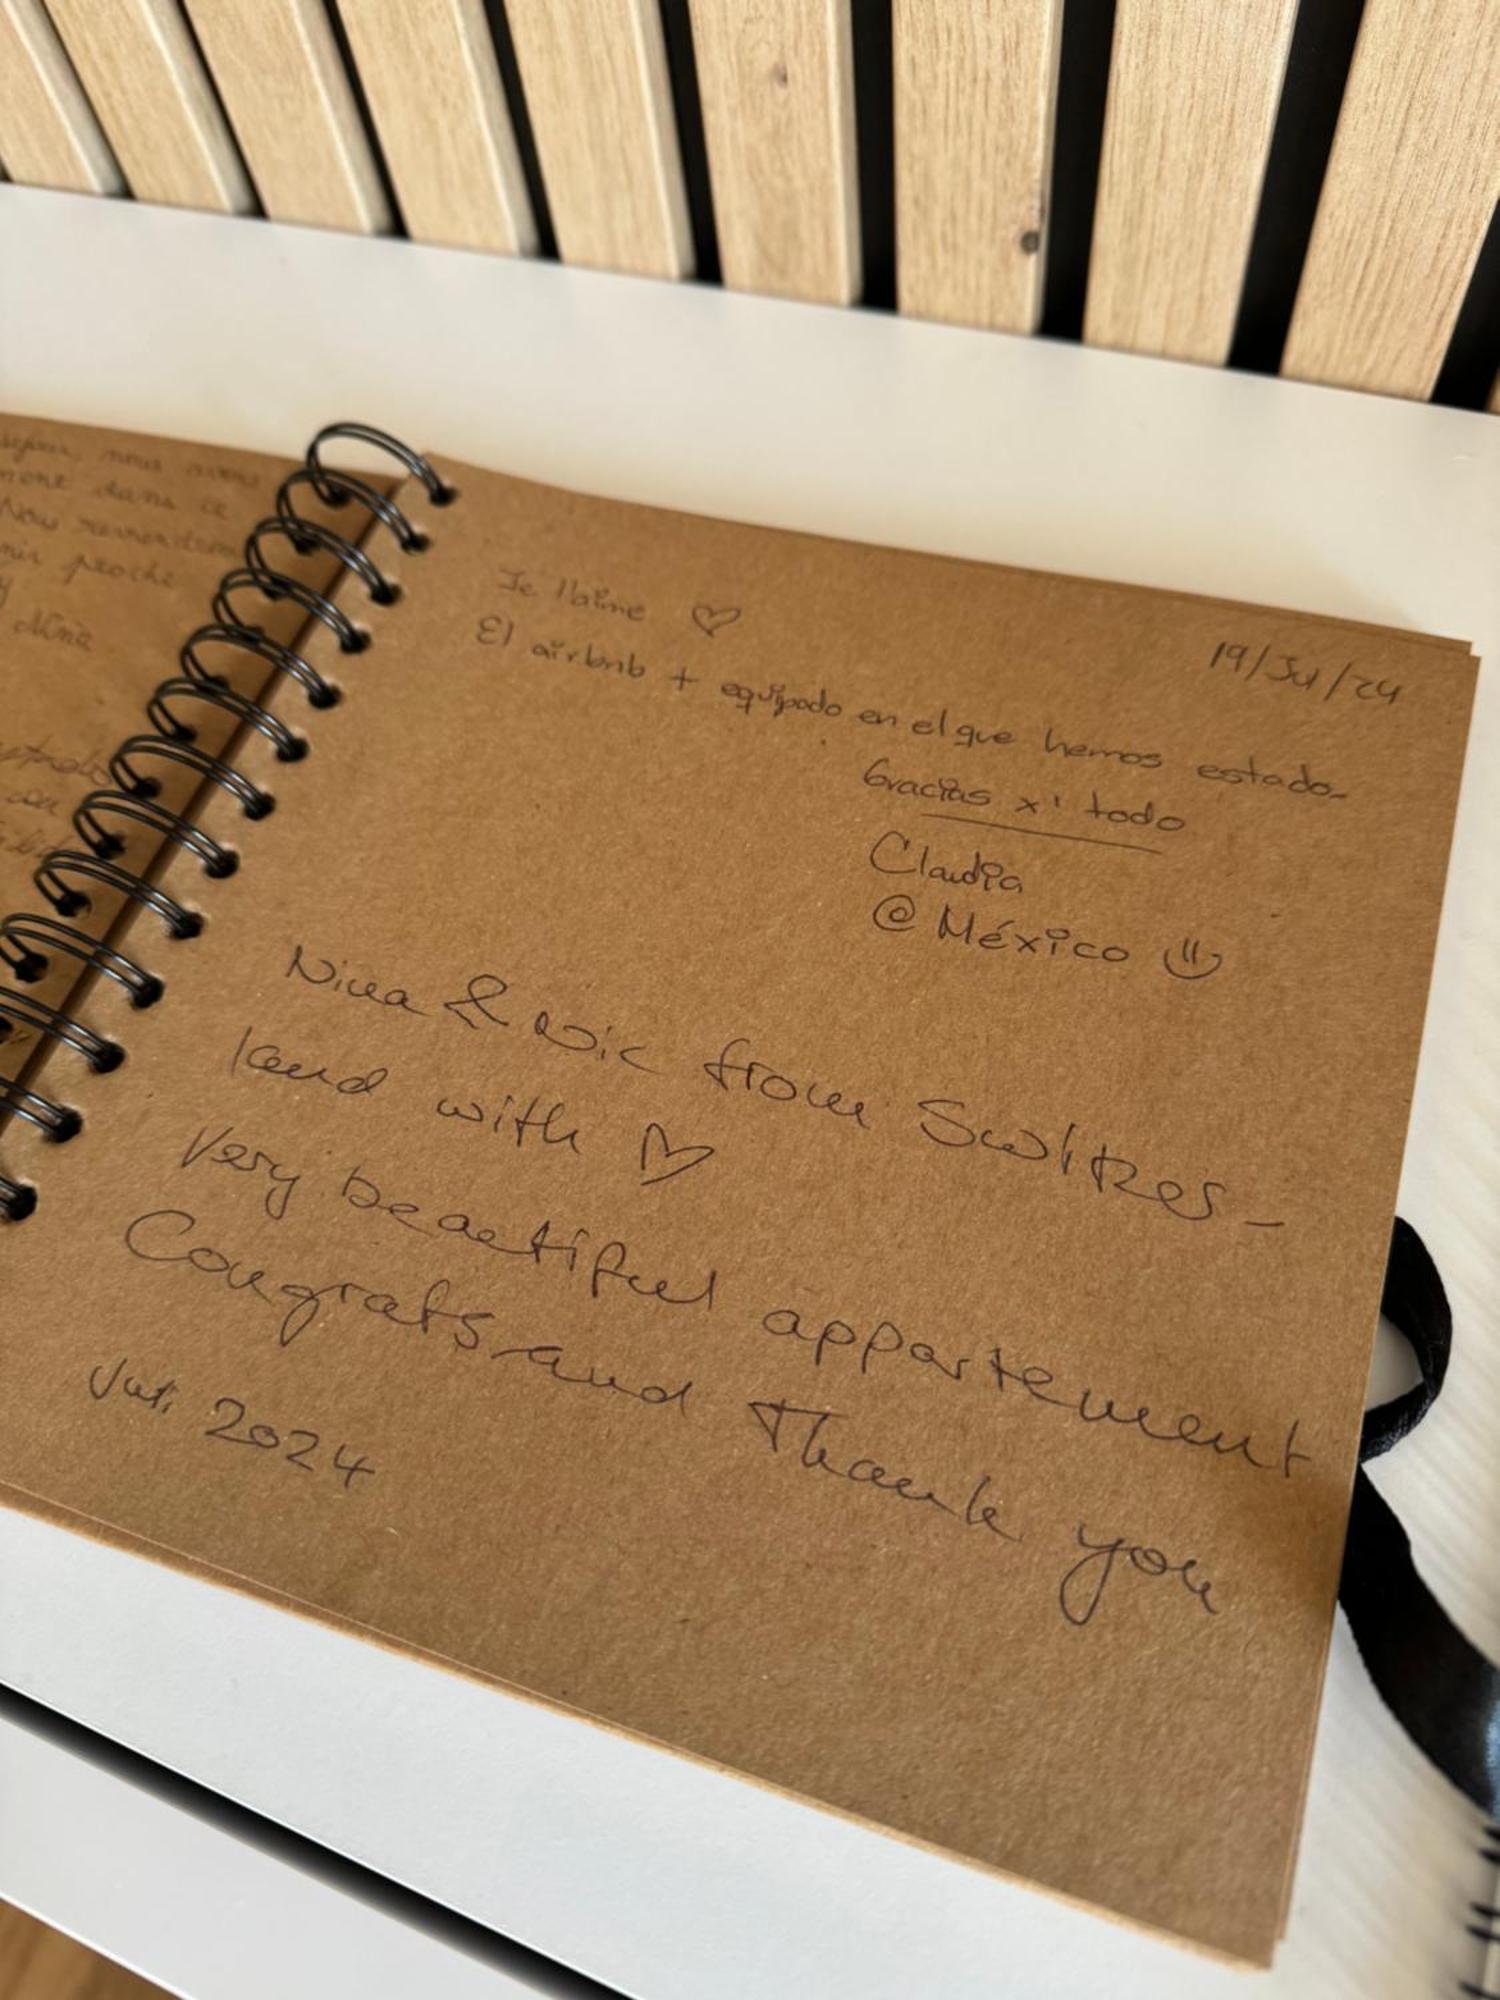 séjour, nous avons
dans ce
Nous reviendrons
proche
Nina
19/Jul/24
Je l'aime ♡
El airbnb + equipado en el que hemos estado.
Gracias x' todo
Claudia
@ México
Nina & Nic from Switzer-
land with ♡
Very beautiful appartement
Congrats and Thank you
Juli 2024